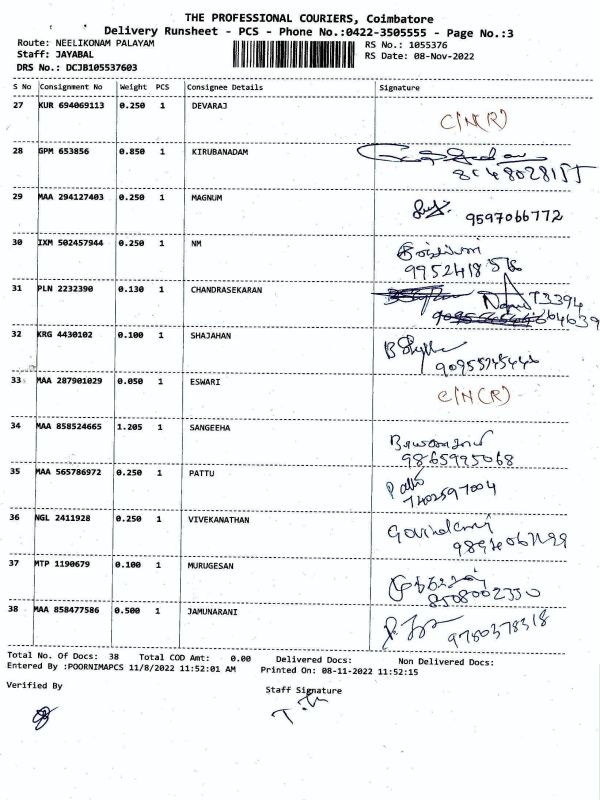 THE PROFESSIONAL COURIERS, Coimbatore
Delivery Runsheet - PCS - Phone No.:0422-3505555 - Page No.:3
Route: NEELIKONAM PALAYAM
RS No.: 1055376
Staff: JAYABAL
RS Date: 08-Nov-2022
DRS No.: DCJB105537603
S No Consignment No Weight PCS Consignee Details Signature
27 KUR 694069113 0.250 1 DEVARAJ
C/N(R)
28 GPM 653856 0.850 1 KIRUBANADAM
29 MAA 294127403 0.250 1 MAGNUM
9597066772
30 IXM 502457944 0.250 1 NM
31 PLN 2232390 0.130 1 CHANDRASEKARAN
32 KRG 4430102 0.100 1 SHAJAHAN
33 MAA 287901029 0.050 1 ESWARI
C/N(R)
34 MAA 858524665 1.205 1 SANGEEHA
9865995068
35 MAA 565786972 0.250 1 PATTU
Pattu
7402597004
36 NGL 2411928 0.250 1 VIVEKANATHAN
37 MTP 1190679 0.100 1 MURUGESAN
8508002350
38 MAA 858477586 0.500 1 JAMUNARANI
9780378318
Total No. Of Docs: 38 Total COD Amt: 0.00 Delivered Docs: Non Delivered Docs:
Entered By :POORNIMAPCS 11/8/2022 11:52:01 AM Printed On: 08-11-2022 11:52:15
Verified By Staff Signature